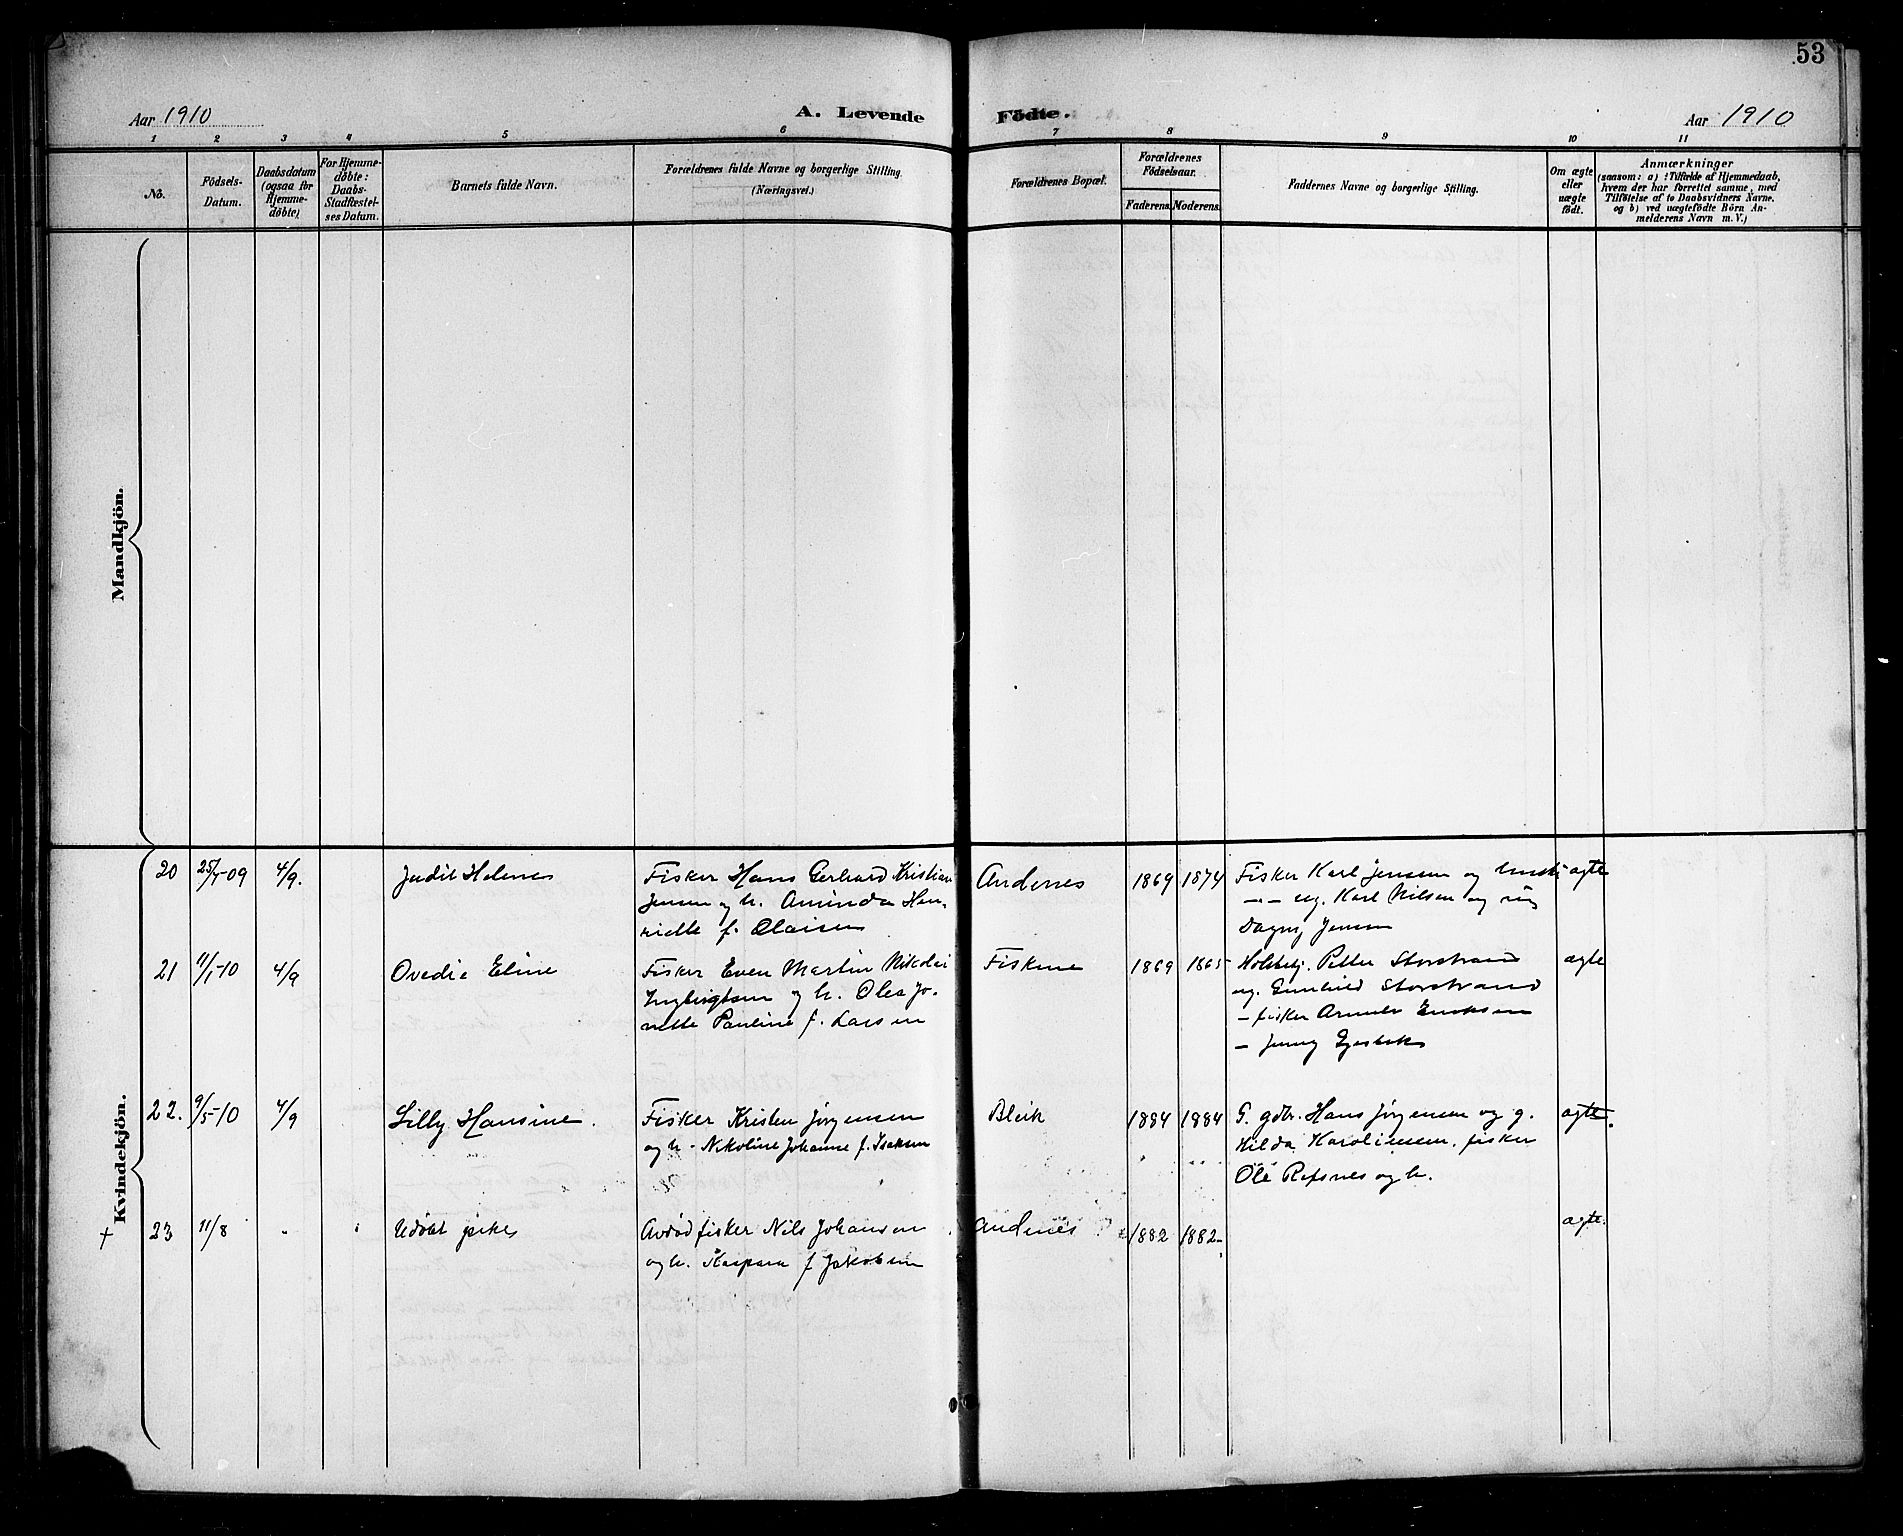 53
Aar 1910
A. Levende Födte.
Aar 1910
1 2 3 4 5 6 7 8 9 10 11
No.
Födsels-
Datum.
Daabsdatum
(ogsaa for
Hjemme-
døbte)
For Hjemme-
døbte:
Daabs-
Stadfæstel-
ses Datum.
Barnets fulde Navn.
Forældrenes fulde Navne og borgerlige Stilling.
(Næringsvei.)
Forældrenes Bopæl.
Forældrenes
Födselsaar.
Faderens. Moderens.
Faddernes Navne og borgerlige Stilling.
Om ægte
eller
uægte
født.
Anmærkninger
(saasom: a) i Tilfælde af Hjemmedaab,
hvem der har forrettet samme, med
Tilføielse af to Daabsvidners Navne,
og b) ved uægtefødte Börn An-
melderens Navn m. V.)
Mandkjön.
Kvindekjön.
20 25/-09 4/9. Judit Helene Fisker Hans Gerhard Kristian Andenes 1869 1874 Fisker Karl Jensen og hustr. ægte
Jensen og h. Aminda Hen- – – ug. Karl Nilsen og
riette f. Olaisen Dagny Jensen
21 11/1-10 4/9 Ovedie Eline Fisker Even Martin Nikolai Fiskenes 1869 1865 Petter Storstrand ægte
Ingebrigtsen og h. Olea Jo- ug. Gunhild Storstrand
nette Pauline f. Larsen – fisker Eriksen
– Jenny
22. 9/5-10 4/9 Lilly Hansine. Fisker Kristen Jørgensen Bleik 1884 1884 G. gdbr. Hans Jørgensen og g. ægte.
og h. Nikoline Johanne f. Isaksen Hilda Karoliussen, fisker
Ole Refsnes og h.
+ 23 11/8 Udøbt pike Avdød fisker Nils Johansen Andenes 1882 1882 ægte.
og h. Kaspara f Jakobsen